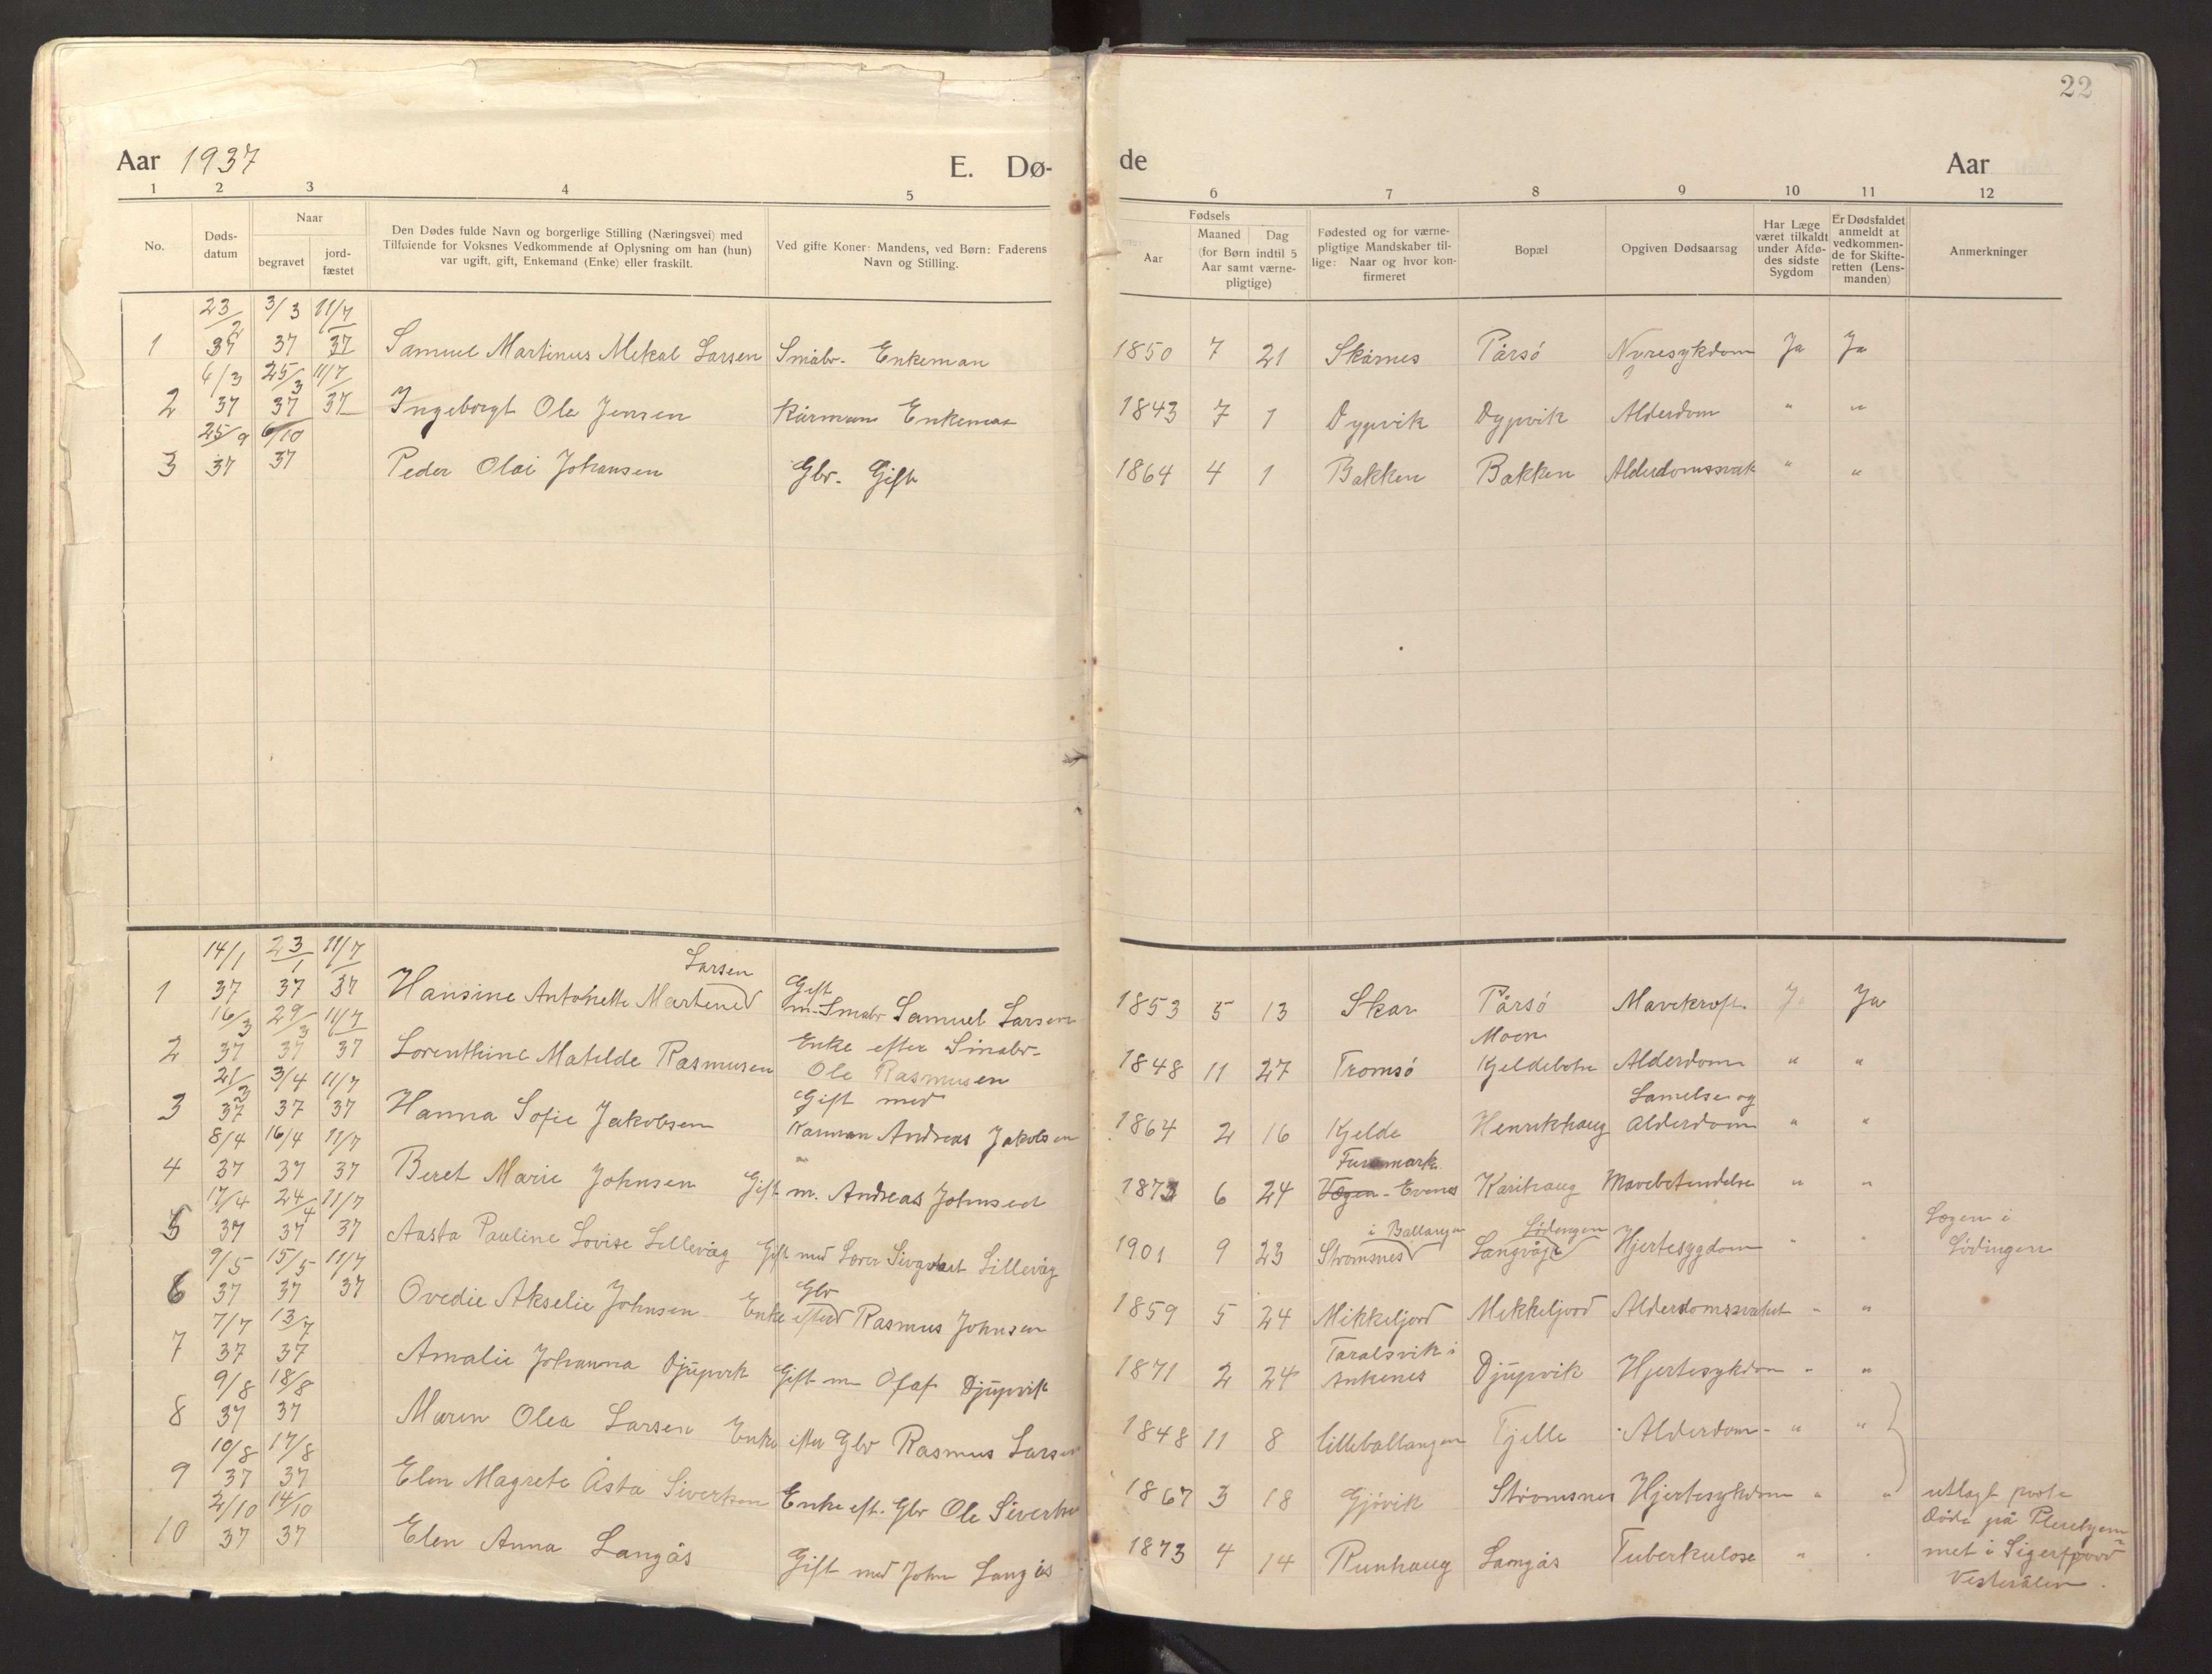 22
Aar 1937 E. Dø- de Aar
1 2 3 4 5 6 7 8 9 10 11 12
No.
Døds-
datum
Naar
begravet
jord-
fæstet
Den Dødes fulde Navn og borgerlige Stilling (Næringsvei) med
Tilføiende for Voksnes Vedkommende af Oplysning om han (hun)
var ugift, gift, Enkemand (Enke) eller fraskilt.
Ved gifte Koner: Mandens, ved Børn: Faderens
Navn og Stilling.
Fødsels
Aar
Maaned Dag
(for Børn indtil 5
Aar samt værne-
pligtige)
Fødested og for værne-
pligtige Mandskaber til-
lige: Naar og hvor kon-
firmeret
Bopæl
Opgiven Dødsaarsag
Har Læge
været tilkaldt
under Afdø-
des sidste
Sygdom
Er Dødsfaldet
anmeldt at
vedkommen-
de for Skifte-
retten (Lens-
manden)
Anmerkninger
23/2 3/3 11/7
1 37 37 37 Samuel Martinus Mekal Larsen Småbr. Enkeman 1850 7 21 Skårnes Pårsö Nyresykdom Ja Ja
6/3 25/3 11/7
2 37 37 37 Ingeborgt Ole Jensen Kårmann Enkeman 1843 7 1 Dypvik Dypvik Alderdom " "
25/9 6/10
3 37 37 Peder Olai Johansen Gbr. Gift 1864 4 1 Bakken Bakken Alderdomssvak " "
14/1 23/1 11/7 Larsen Gift
1 37 37 37 Hansine Antonette Martened m. Småbr Samuel Larsen 1853 5 13 Skar Pårsö Mavekræft Ja Ja
16/3 29/3 11/7 Enke efter Småbr. Moen
2 37 37 37 Lorenthine Matelde Rasmusen Ole Rasmusen 1848 11 27 Tromsö Kjeldebotn Alderdom " "
21/3 3/4 11/7 Gift med Lamelse og
3 37 37 37 Hanna Sofie Jakobsen Karman Andreas Jakobsen 1864 2 16 Kjelde Henrikhaug Alderdom " "
8/4 16/4 11/7 "
4 37 37 37 Beret Marie Johnsen Gift m. Andreas Johnsed 1873 6 24 Vegen - Evenes Karihaug Mavebetendelse " "
17/4 24/4 11/7 i Ballangen Lødingen Legen i
5 37 37 37 Aasta Pauline Lovise Lillevåg Gift med Lærer Sivgvart Lillevåg 1901 9 23 Strömsnes Langvåge Hjertesygdom " " Lödingen
9/5 15/5 11/7 Gbr
6 37 37 37 Ovedie Akselie Johnsen Enke efted Rasmus Johnsen 1859 5 24 Mikkeljord Mekkeljord Alderdomssvakhet " "
7/7 13/7 Taralsvik i
7 37 37 Amalie Johanna Djupvik Gift m Olaf Djupvik 1871 2 24 Ankenes Djupvik Hjertesykdom " "
9/8 18/8
8 37 37 Maren Olea Larsen Enke efter Gbr Rasmus Larsen 1848 11 8 Lilleballangen Tjelle Alderdom " "
10/8 17/8
9 37 37 Elen Magrete Åsta Siverksen Enke eft. Gbr Ole Siverksen 1867 3 18 Gjövik Strömsnes Hjertesykdom " " utlagt
2/10 14/10 Døde på Pleiehjem-
10 37 37 Elen Anna Langås Gift med John Langås 1873 4 14 Runhaug Langås Tuberkulose " " met i Sigerfjord
Vesterålen.